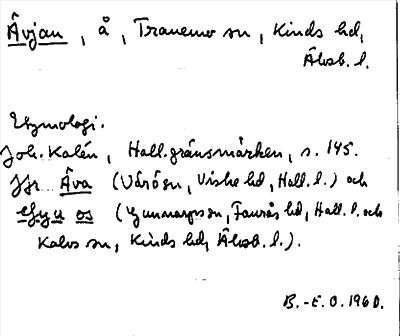 Åvjan, å, Tranemo sn, Kinds hd,
Älvsb. l.
Etymologi.
Joh. Kalén, Hall. gränsmärken, s. 145.
Jfr Åva (Värö sn, Viske hd, Hall. l.) och
os (Gunnarps sn, Faurås hd, Hall. l. och
Kalvs sn, Kinds hd, Älvsb. l.).
B.-E. O. 1960.